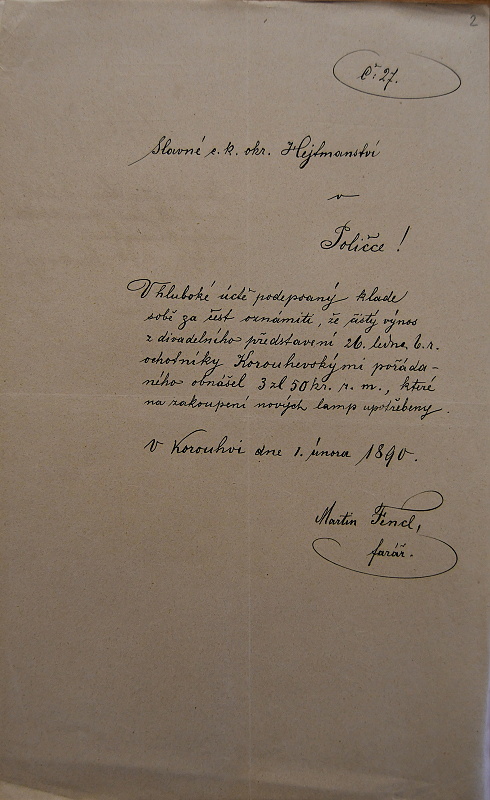 2
Č: 27.
Slavné c. k. okr. Hejtmanství
v
Poličce!
V hluboké úctě podepsaný klade
sobě za čest oznámiti, že čistý výnos
z divadelního představení 26. ledna t. r.
ochotníky Korouhevskými pořáda-
ného obnášel 3 zl 50 kr. r. m., které
na zakoupení nových lamp upotřebeny.
V Korouhvi dne 1. února 1890.
Martin Fencl,
farář.